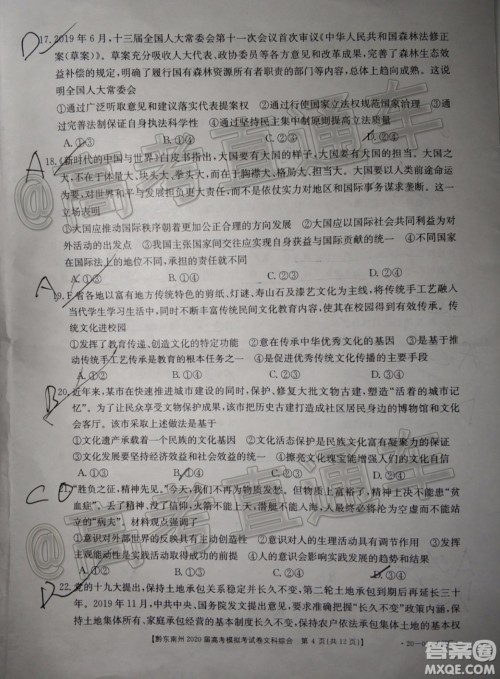 D 17. 2019 年 6 月，十三届全国人大常委会第十一次会议首次审议《中华人民共和国森林法修正
案（草案）》。草案充分吸收人大代表、政协委员等各方意见和改革成果，完善了森林生态效
益补偿的规定，明确了履行国有森林资源所有者职责的主体等内容，总体上趋向成熟。这
说明全国人大常委会
①通过广泛听取意见和建议落实提案权 ②行使国家立法权规范国家治理
③通过完善法制保证自身执法科学性 ④坚持民主集中制原则提高立法质量
A. ①③ B. ①④ C. ②③ D. ②④
A 18. 《新时代的中国与世界》白皮书指出，大国要有大国的样子，要有大国的担当。大国之
大，不在于体量大、块头大、拳头大，而在于胸襟大、格局大、担当大。大国要以人类前途命运
为要，对世界和平与发展担负更大责任，而不是依仗实力对地区和国际事务谋求垄断。这一
立场表明
①大国应推动国际秩序朝着更加公正合理的方向发展 ②大国应以国际社会共同利益为对
外活动的出发点 ③我国主张国家间交往以平等自愿与国际贡献的统一 ④不同国家
在国际法上的地位不同，承担的责任不同
A. ①③ B. ①④ C. ②③ D. ②④
A 19. F 省各地以富有地方传统特色的剪纸、灯谜、寿山石及漆艺文化为主线，将传统手工艺融入
当代学生学习生活中，同时充分挖掘富有地方文化内容的展示内容，加强环境文化教育，使传
统文化进校园
①发挥了教育传递、创造文化的特定功能 ②意在传承中华优秀文化的基因 ③推动
传统手工艺传承是教育的根本任务之一 ④优秀传统文化是学校德育传播的主要手段
A. ①② B. ①③ C. ②④ D. ③④
B 20. 近年来，某市在快速推进城市建设的同时，保护、修复大批文物建筑，塑造“活着的城市记
忆”。为了让民众享受文物保护成果，该市把历史古建筑打造成各具特色的博物馆和文化
会客厅。该市采取上述做法是基于
①文化遗产承载着一个民族的文化基因 ②保护传统文化能丰富有凝聚力的保证
③传统建筑是展现民族文化的重要标志 ④擦亮文化瑰宝可增强地域文化吸引力
A. ①③ B. ①④ C. ②③ D. ②④
C 21. “胜负之征，精神先见。”今天，我们不再为物质发愁，但物质上富裕了，精神上决不能患“贫
血症”。丢了精神、没了信仰，火箭上不了天、航母下不了海，人民军队更不能患精神上站
立的“病夫”。材料强调了
①意识对外部世界的反映具有主动创造性 ②意识对人的生理活动具有调节作用 ③发挥
主观能动性是实践成功的前提 ④精神因素影响着实践的发展趋势和结果
A. ①② B. ①③ C. ②④ D. ③④
D 22. 党的十九大提出，保持土地承包关系稳定并长久不变，第二轮土地承包到期后再延长三十
年。2019 年 11 月，中共中央、国务院为了充分保障农村土地承包“长久不变”政策内涵，提
出保持土地集体所有、家庭承包经营的基本制度长久不变，保持农户依法承包集体土地的
【黔东南州 2020 届高考模拟考试卷文科综合 第 4 页（共 12 页）】
高考直通车